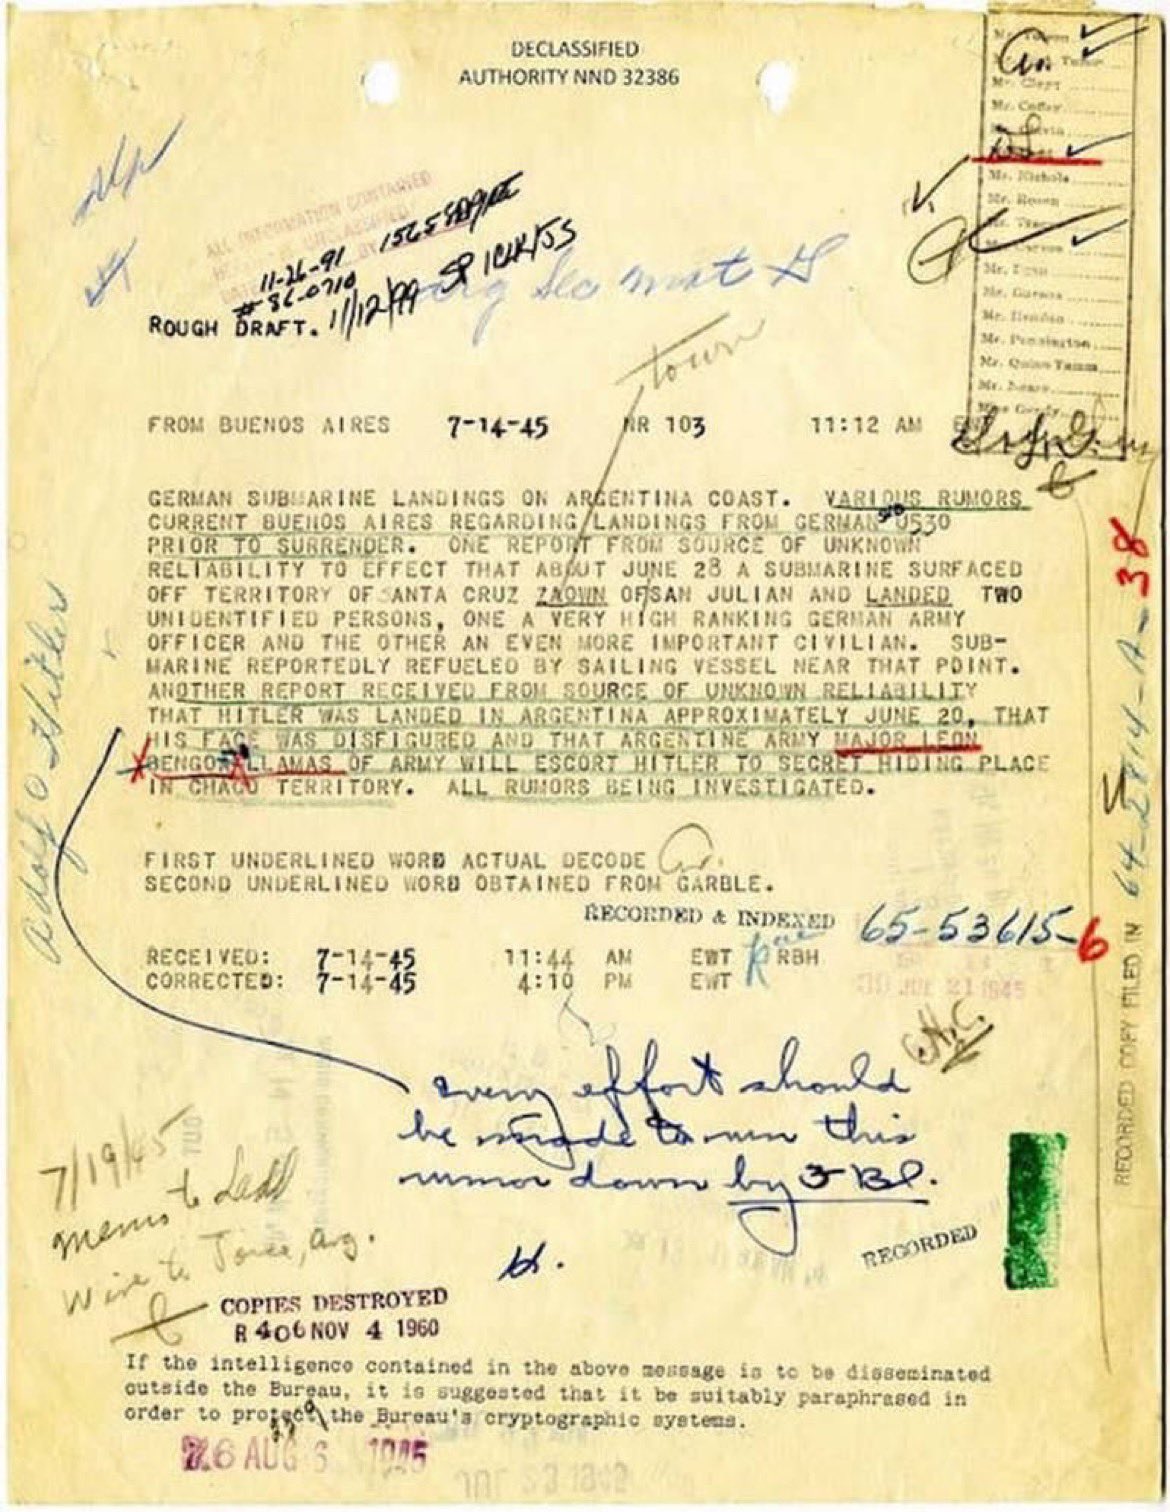 DECLASSIFIED
AUTHORITY NND 32386
Mr. Clegg
Mr. Coffey
Mr. Nichols
Mr. Rosen
Mr. Egan
Mr. Hendon
Mr. Pennington
Mr. Quinn Tamm
Mr. Nease
Miss Gandy
ALL INFORMATION CONTAINED
11-26-91
# 86-0710
11/12/99
ROUGH DRAFT.
town
FROM BUENOS AIRES 7-14-45 NR 103 11:12 AM
GERMAN SUBMARINE LANDINGS ON ARGENTINA COAST. VARIOUS RUMORS
CURRENT BUENOS AIRES REGARDING LANDINGS FROM GERMAN U530
PRIOR TO SURRENDER. ONE REPORT FROM SOURCE OF UNKNOWN
RELIABILITY TO EFFECT THAT ABOUT JUNE 28 A SUBMARINE SURFACED
OFF TERRITORY OF SANTA CRUZ ZAOWN OFSAN JULIAN AND LANDED TWO
UNIDENTIFIED PERSONS, ONE A VERY HIGH RANKING GERMAN ARMY
OFFICER AND THE OTHER AN EVEN MORE IMPORTANT CIVILIAN. SUB-
MARINE REPORTEDLY REFUELED BY SAILING VESSEL NEAR THAT POINT.
ANOTHER REPORT RECEIVED FROM SOURCE OF UNKNOWN RELIABILITY
THAT HITLER WAS LANDED IN ARGENTINA APPROXIMATELY JUNE 20, THAT
HIS FACE WAS DISFIGURED AND THAT ARGENTINE ARMY MAJOR LEON
BENGOA LLAMAS OF ARMY WILL ESCORT HITLER TO SECRET HIDING PLACE
IN CHACO TERRITORY. ALL RUMORS BEING INVESTIGATED.
Adolf Hitler
FIRST UNDERLINED WORD ACTUAL DECODE
SECOND UNDERLINED WORD OBTAINED FROM GARBLE.
RECORDED & INDEXED 65-53615-6
RECEIVED: 7-14-45 11:44 AM EWT RBH
CORRECTED: 7-14-45 4:10 PM EWT
JUL 21 1945
RECORDED COPY FILED IN 64-2814-A-38
every effort should
be made to run this
rumor down by FBI.
H.
7/19/45
memo to Ladd
Wire to Joice, Arg.
RECORDED
COPIES DESTROYED
R 406 NOV 4 1960
If the intelligence contained in the above message is to be disseminated
outside the Bureau, it is suggested that it be suitably paraphrased in
order to protect the Bureau's cryptographic systems.
76 AUG 6 1945